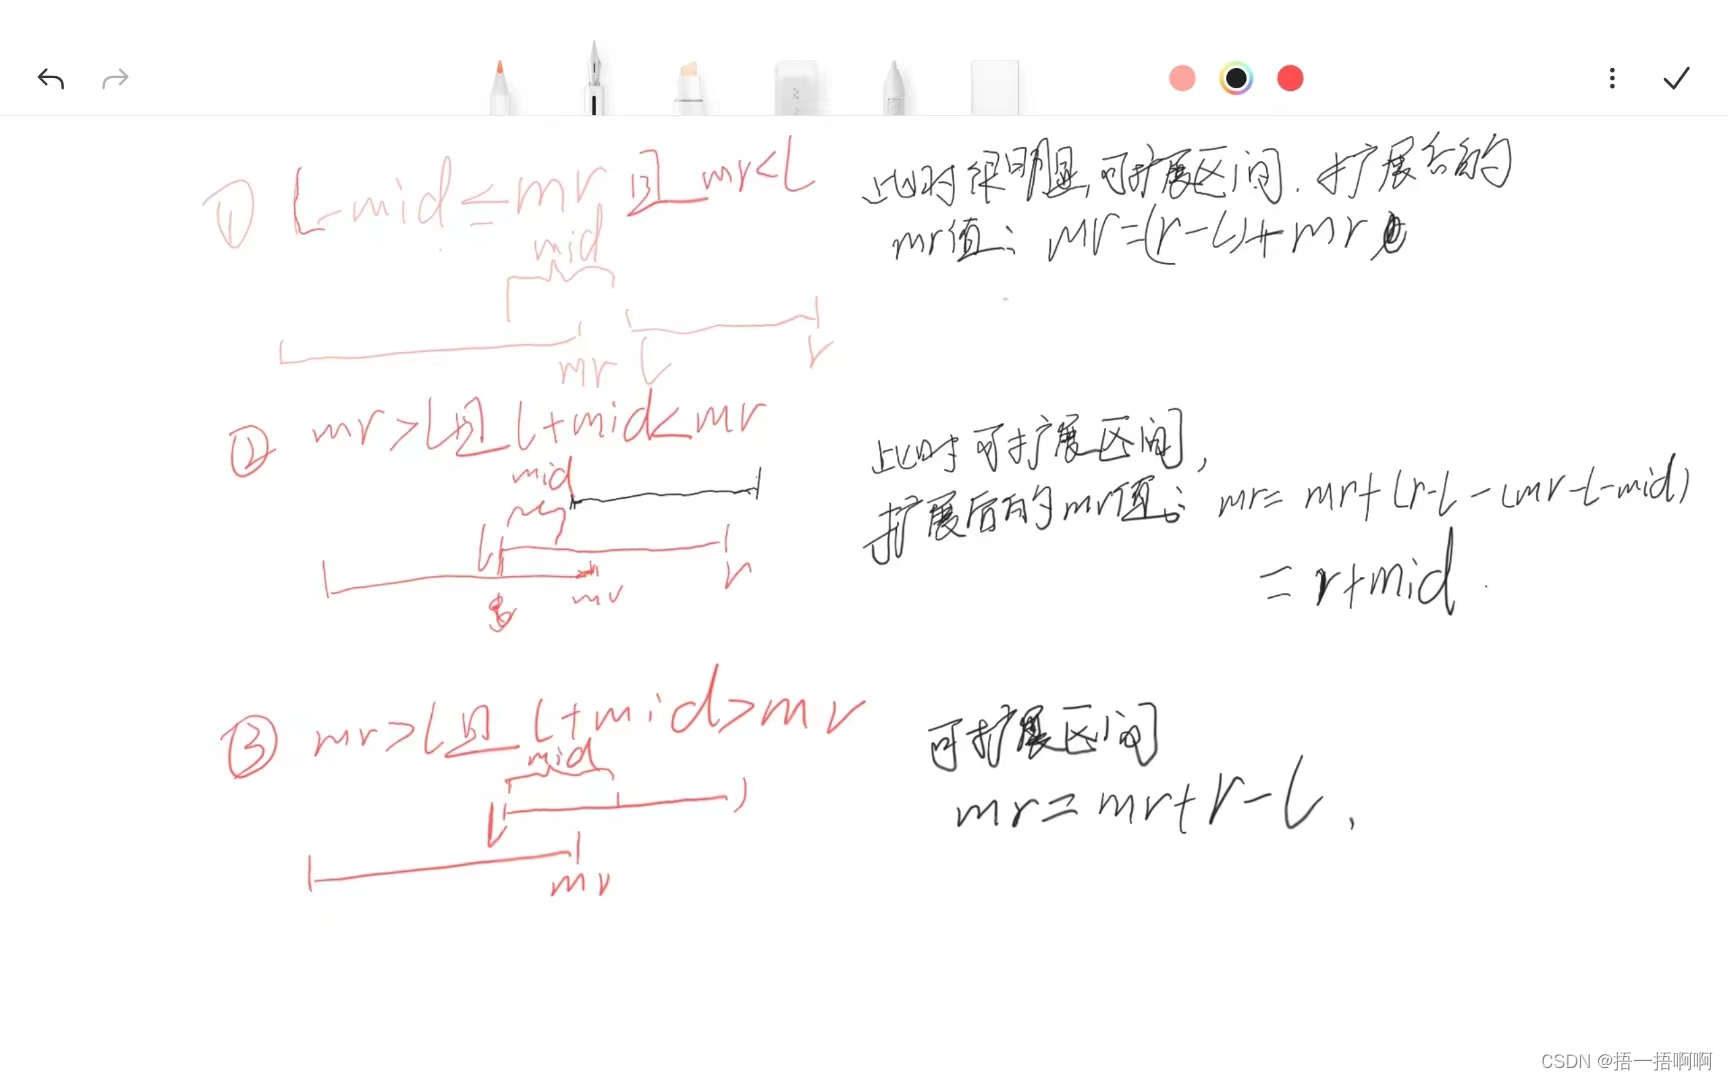 ① L-mid≤mr且 mr<L
此时很明显,可扩展区间. 扩展后的
mr值: mr=(r-L)+mr
mid
mr L r
② mr>L且 L+mid≤mr
此时可扩展区间,
扩展后的mr值: mr= mr+(r-L-(mr-L-mid)
= r+mid.
mid
L r
mr
③ mr>L且 L+mid>mr
可扩展区间
mr=mr+r-L.
mid
L
mr
CSDN @捂一捂啊啊